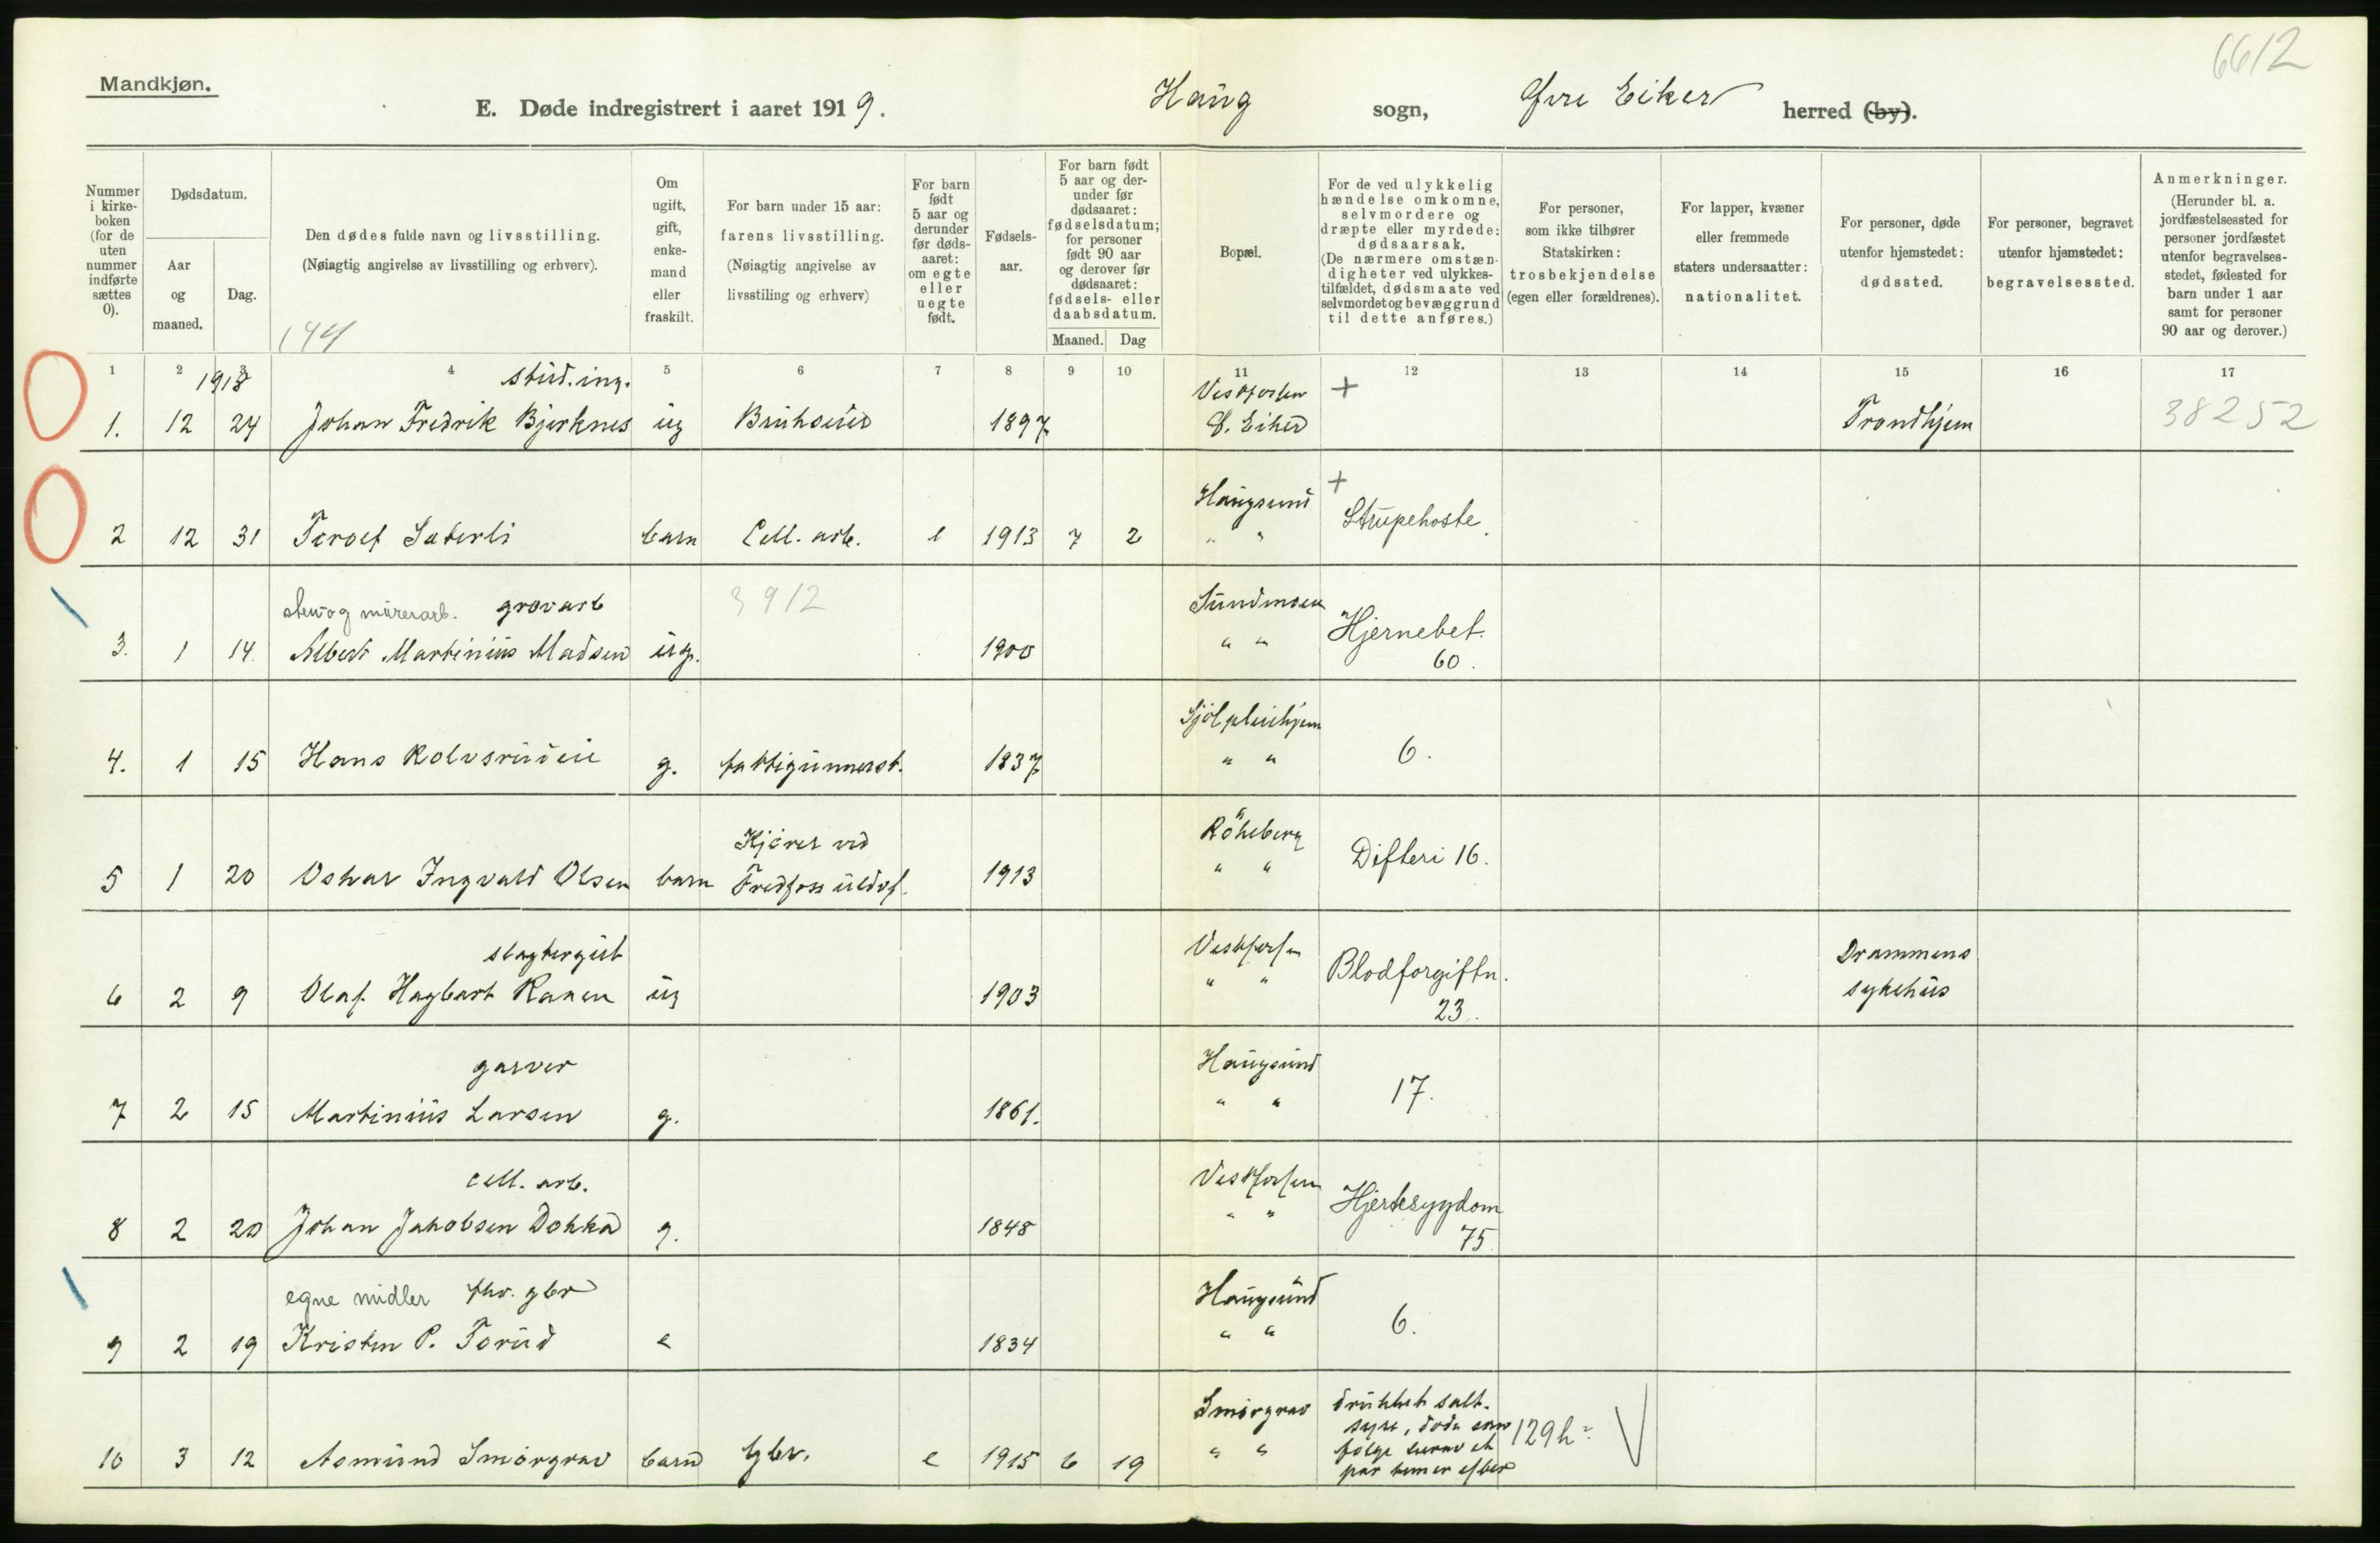 6612
Mandkjøn.
E. Døde indregistrert i aaret 1919. Haug sogn, Øvre Eiker herred (by).
Nummer i kirkeboken (for de uten nummer indførte sættes 0).
Dødsdatum.
Aar og maaned.
Dag.
Den dødes fulde navn og livsstilling.
(Nøiagtig angivelse av livsstilling og erhverv).
144
Om ugift, gift, enkemand eller fraskilt.
For barn under 15 aar:
farens livsstilling.
(Nøiagtig angivelse av livsstiling og erhverv)
For barn født 5 aar og derunder før dødsaaret: om egte eller uegte født.
Fødselsaar.
For barn født 5 aar og derunder før dødsaaret: fødselsdatum; for personer født 90 aar og derover før dødsaaret: fødsels- eller daabsdatum.
Maaned. Dag
Bopæl.
For de ved ulykkelig hændelse omkomne, selvmordere og dræpte eller myrdede: dødsaarsak.
(De nærmere omstændigheter ved ulykkestilfældet, dødsmaate ved selvmordet og bevæggrund til dette anføres.)
For personer, som ikke tilhører Statskirken: trosbekjendelse (egen eller forældrenes).
For lapper, kvæner eller fremmede staters undersaatter: nationalitet.
For personer, døde utenfor hjemstedet: dødssted.
For personer, begravet utenfor hjemstedet: begravelsessted.
Anmerkninger.
(Herunder bl. a. jordfæstelsessted for personer jordfæstet utenfor begravelsesstedet, fødested for barn under 1 aar samt for personer 90 aar og derover.)
1 2 3 4 5 6 7 8 9 10 11 12 13 14 15 16 17
1918 stud. ing. Vestfossen +
1. 12 24 Johan Fredrik Bjerknes ug Brukseier 1897 Ø. Eiker Trondhjem 38252
Haugsund +
2 12 31 Torolf Sæterli barn Cell. arb. e 1913 7 2 " " Strupehoste.
sten og murerarb. grovarb 3912 Sundmoen
3. 1 14. Albert Martinius Madsen ug. 1900 " " Hjernebet. 60.
Sjøl pleiehjem
4. 1 15 Hans Kolvsrudeie g. fattigunnerst. 1837 " " 6.
Kjører ved Røkeberg
5 1 20 Oskar Ingvald Olsen barn Fredfoss uldvf. 1913 " " Difteri 16.
slagtergut Vestfossen Drammens
6 2 9 Olaf Hagbart Ranen ug 1903 " " Blodforgiftn. 23. sykehus
garver Haugsund
7 2 15 Martinius Larsen g. 1861. " " 17.
cell. arb. Vestfossen
8 2 20 Johan Jakobsen Dokka g. 1848 " " Hjertesygdom 75
egne midler fhv. gbr Haugsund
9 2 19 Kristen P. Torud e 1834 " " 6.
Smørgrav drukket salt-
syre, døde som
10 3 12 Asmund Smørgrav barn gbr. e 1915 6 19 " " følge herav et 129h
par timer efter